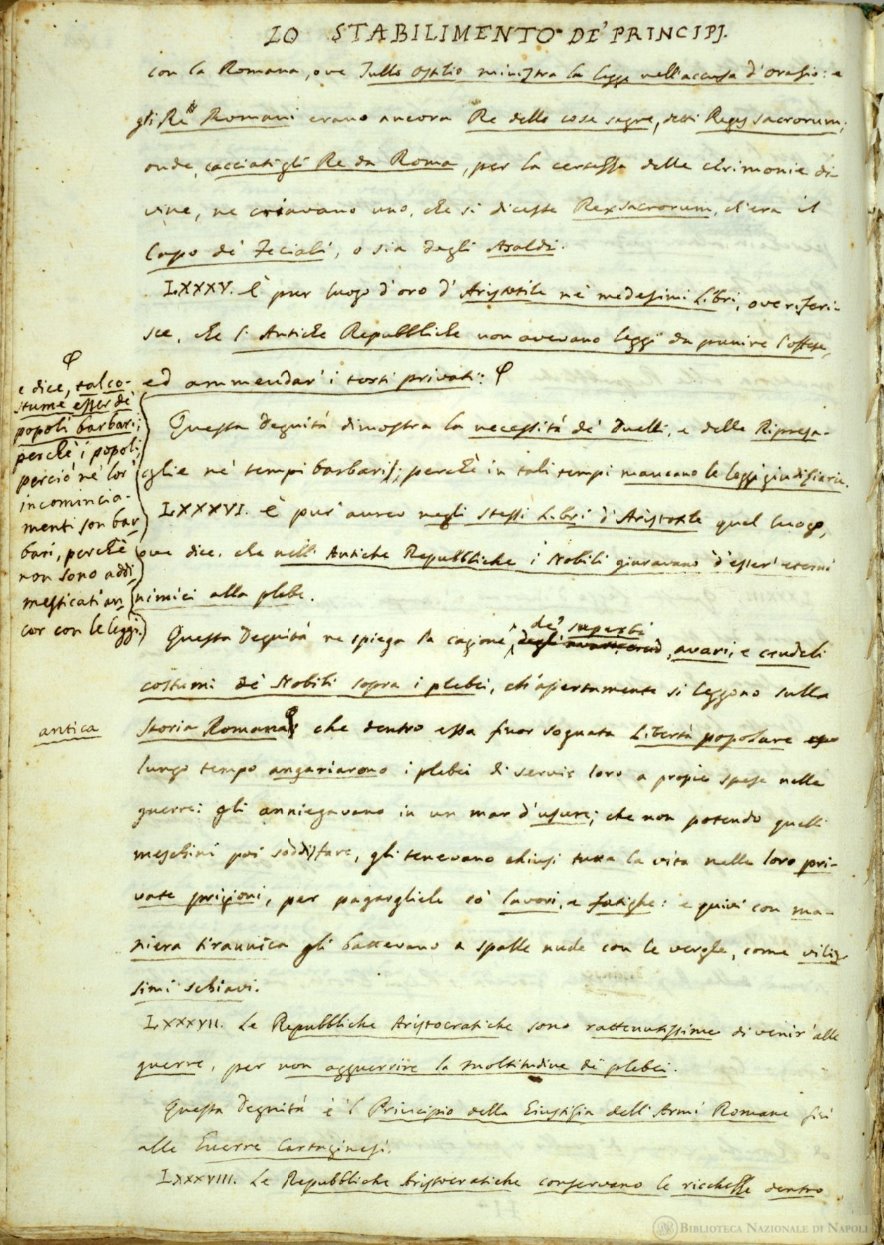 LO STABILIMENTO DE' PRINCIPJ.
con la Romana, ove Tullo Ostilio ministra la legge nell'accusa d'Orazio: e
gli Re Romani erano ancora Re delle cose sagre, detti Reges sacrorum;
onde, cacciati gli Re da Roma, per la certezza delle cerimonie di-
vine, ne criavano uno, che si dicesse Rex sacrorum, ch'era il
Capo de' Feciali, o sia degli Araldi.
LXXXV. È pur luogo d'oro d'Aristotile ne' medesimi Libri, ove riferi-
sce, che l'Antiche Repubbliche non avevano leggi da punire l'offese,
ed ammendar' i torti privati: φ
φ
e dice, tal co-
stume esser de'
popoli barbari;
perchè i popoli
perciò ne' lor'
incomincia-
menti son bar-
bari, perchè
non sono addi-
mesticati an-
cor con le leggi.
Questa Degnità dimostra la necessità de' Duelli, e delle Ripresa-
glie ne' tempi barbari; perchè in tali tempi mancano le leggi giudiziarie.
LXXXVI. È pur' aureo negli stessi Libri d'Aristotile quel luogo,
ove dice, che nell'Antiche Repubbliche i Nobili giuravano d'esser' eterni
nimici alla plebe.
Questa Degnità ne spiega la cagione de' superbi, avari, e crudeli
costumi de' Nobili sopra i plebei, ch'apertamente si leggono sulla
antica
Storia Romana; che dentro essa finor sognata Libertà popolare
lungo tempo angariarono i plebei di servir loro a propie spese nelle
guerre: gli anniegavano in un mar d'usure; che non potendo quelli
meschini poi soddisfare, gli tenevano chiusi tutta la vita nelle loro pri-
vate prigioni, per pagargliele co' lavori, e fatighe: e quivi con ma-
niera tirannica gli battevano a spalle nude con le verghe, come vilis-
simi schiavi.
LXXXVII. Le Repubbliche Aristocratiche sono rattenutissime di venir' alle
guerre, per non agguerrire la moltitudine de' plebei.
Questa Degnità è 'l Principio della Giustizia dell'Armi Romane fin'
alle Guerre Cartaginesi.
LXXXVIII. Le Repubbliche Aristocratiche conservano le ricchezze dentro
BIBLIOTECA NAZIONALE DI NAPOLI